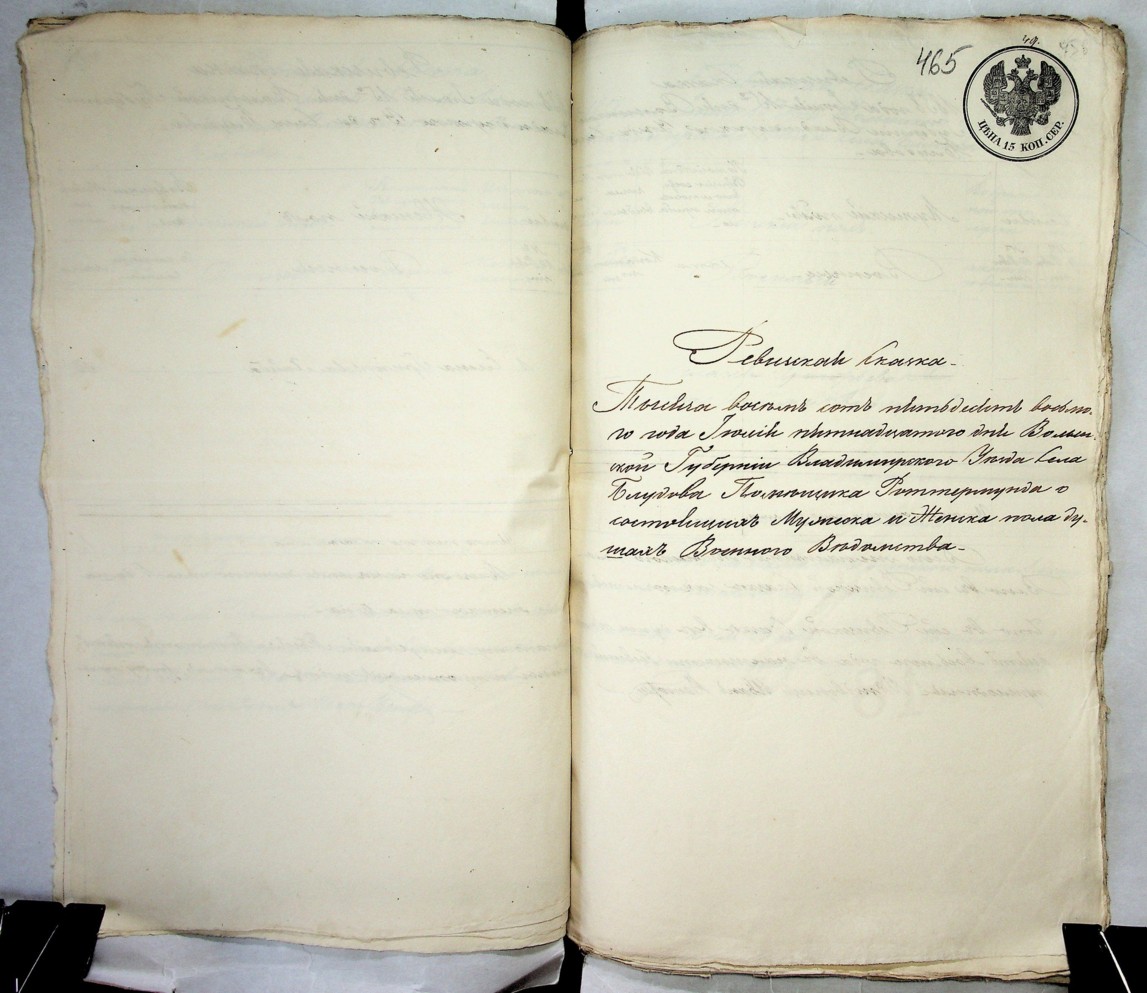 465
49.
ЦѢНА 15 КОП. СЕР.
Ревизская Сказка
Тысяча восемь сотъ пятьдесятъ восьмо-
го года Іюля пятнадцатого дня Волын-
ской Губерніи Владимирского Уѣзда Села
Блудова Помѣщика Роттермунда о
состоящихъ Мужеска и Женска пола ду-
шахъ Военного Вѣдомства